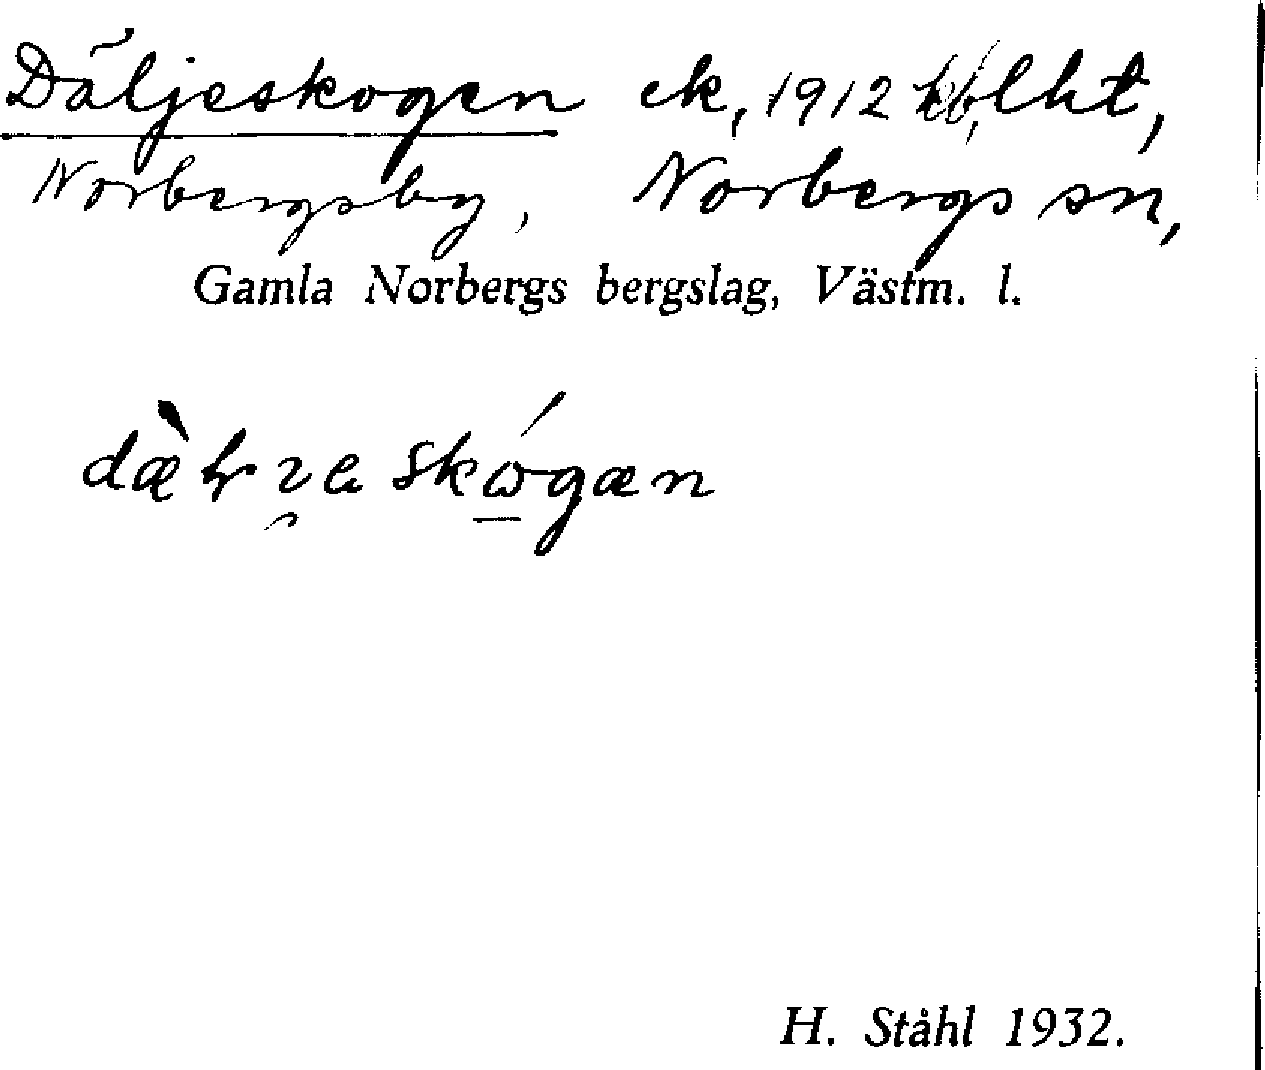 Däljeskogen ek, 1912 lht,
Norbergsby, Norbergs sn,
Gamla Norbergs bergslag, Västm. l.
H. Ståhl 1932.